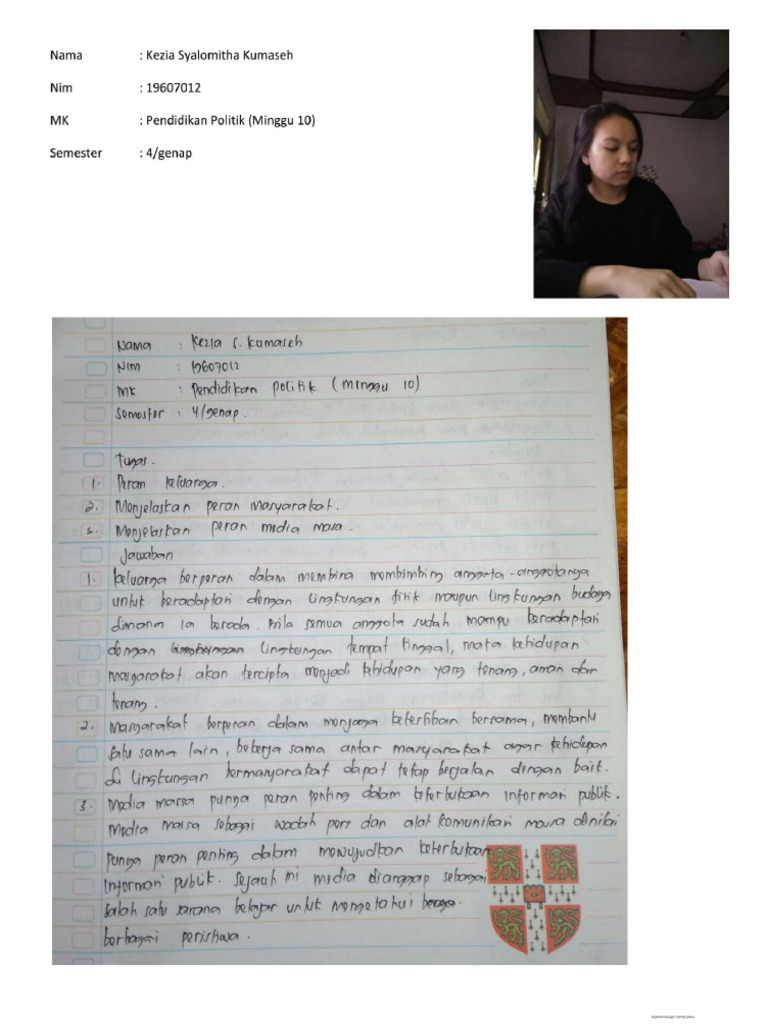 Nama : Kezia Syalomitha Kumaseh
Nim : 19607012
MK : Pendidikan Politik (Minggu 10)
Semester : 4/genap
Nama : Kezia S. Kumaseh
Nim : 19607012
MK : Pendidikan politik (Minggu 10)
Semester : 4/genap.
Tugas.
1. Peran keluarga.
2. Menjelaskan peran masyarakat.
3. Menjelaskan peran media masa.
Jawaban
1. Keluarga berperan dalam membina membimbing anggota-anggotanya
untuk beradaptasi dengan lingkungan fisik maupun lingkungan budaya
dimana ia berada. Bila semua anggota sudah mampu beradaptasi
dengan lingkungan lingkungan tempat tinggal, maka kehidupan
masyarakat akan tercipta menjadi kehidupan yang tenang, aman dan
tenang.
2. Masyarakat berperan dalam menjaga ketertiban bersama, membantu
satu sama lain, bekerja sama antar masyarakat agar kehidupan
di lingkungan bermasyarakat dapat tetap berjalan dengan baik.
3. Media massa punya peran penting dalam keterbukaan informasi publik.
Media massa sebagai wadah pers dan alat komunikasi massa dinilai
punya peran penting dalam mewujudkan keterbukaan
informasi publik. Sejauh ini media dianggap sebagai
salah satu sarana belajar untuk mengetahui
berbagai peristiwa.